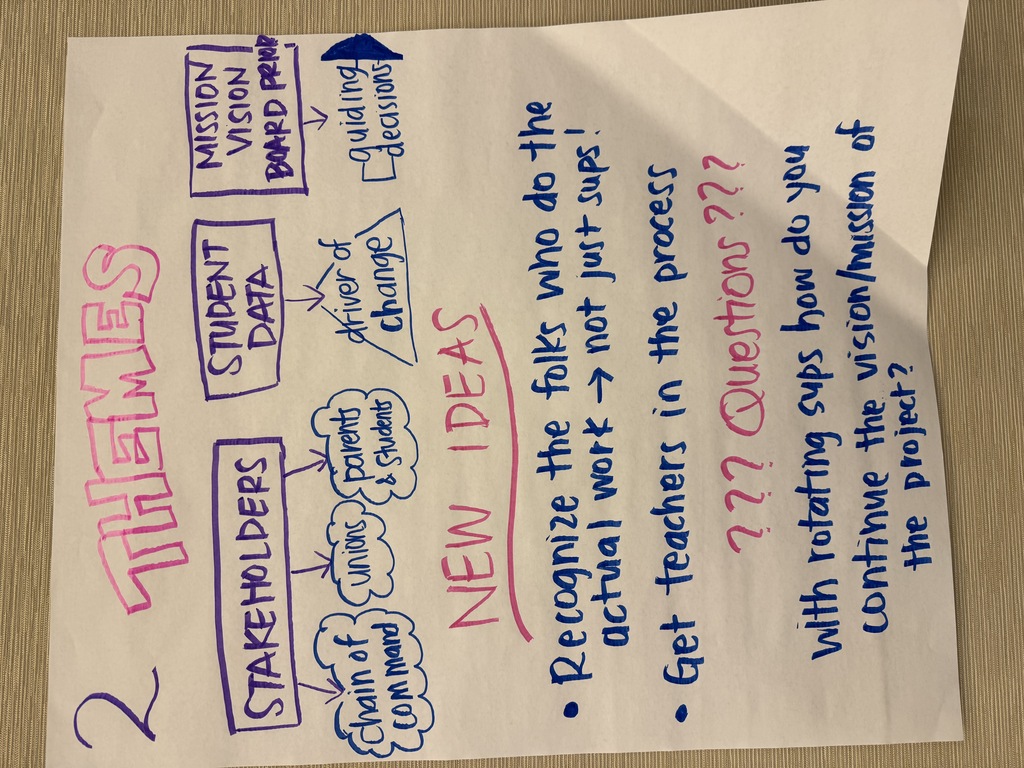 2 THEMES
STAKEHOLDERS
chain of
command
unions
parents
& students
STUDENT
DATA
driver of
change
MISSION
VISION
BOARD PRIOR
guiding
decisions
NEW IDEAS
• Recognize the folks who do the
actual work → not just sups!
• Get teachers in the process
??? Questions ???
With rotating sups how do you
continue the vision/mission of
the project?